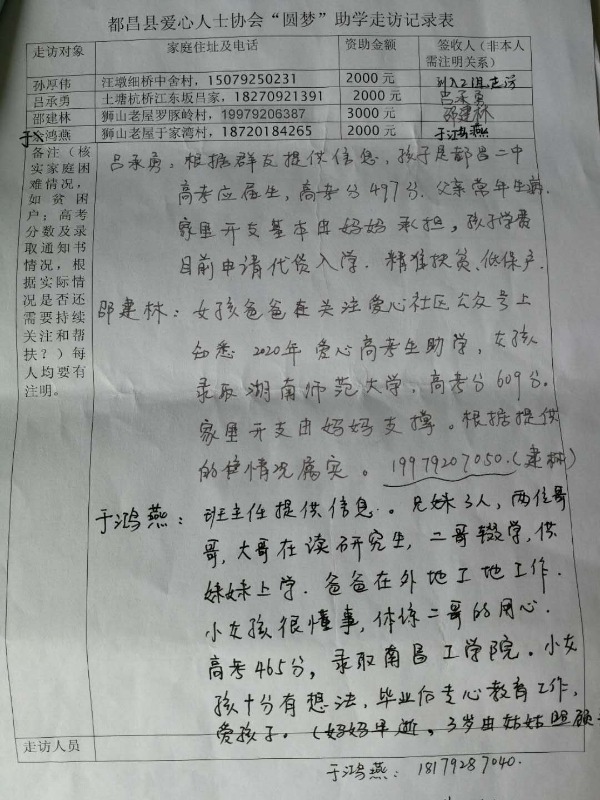 都昌县爱心人士协会“圆梦”助学走访记录表
走访对象 家庭住址及电话 资助金额 签收人(非本人需注明关系)
孙厚伟 汪墩细桥中舍村,15079250231 2000 元 列入2组走访
吕承勇 土塘杭桥江东坂吕家,18270921391 2000 元 吕承勇
邵建林 狮山老屋罗豚岭村,19979206387 3000 元 邵建林
于鸿燕 狮山老屋于家湾村,18720184265 2000 元 于鸿燕
备注(核
实家庭困
难情况,
如贫困
户;高考
分数及录
取通知书
情况,根
据实际情
况是否还
需要持续
关注和帮
扶?)每
人均要有
注明。
吕承勇:根据群友提供信息,孩子是都昌二中
高考应届生,高考分497分.父亲常年生病.
家里开支基本由妈妈承担,孩子学费
目前申请代贷入学.精准扶贫、低保户.
邵建林:女孩爸爸在关注爱心社区公众号上
知悉2020年爱心高考生助学,女孩
录取湖南师范大学,高考分609分.
家里开支由妈妈支撑。根据提供
的情况属实。19979207050.(建林)
于鸿燕:班主任提供信息.。兄妹3人,两位哥
哥,大哥在读研究生,二哥辍学,供
妹妹上学.爸爸在外地工地工作.
小女孩很懂事,体谅二哥的用心.
高考465分,录取南昌工学院。小女
孩十分有想法,毕业后专心教育工作,
爱孩子。(妈妈早逝,3岁由姑姑照顾
走访人员
于鸿燕:18179287040.